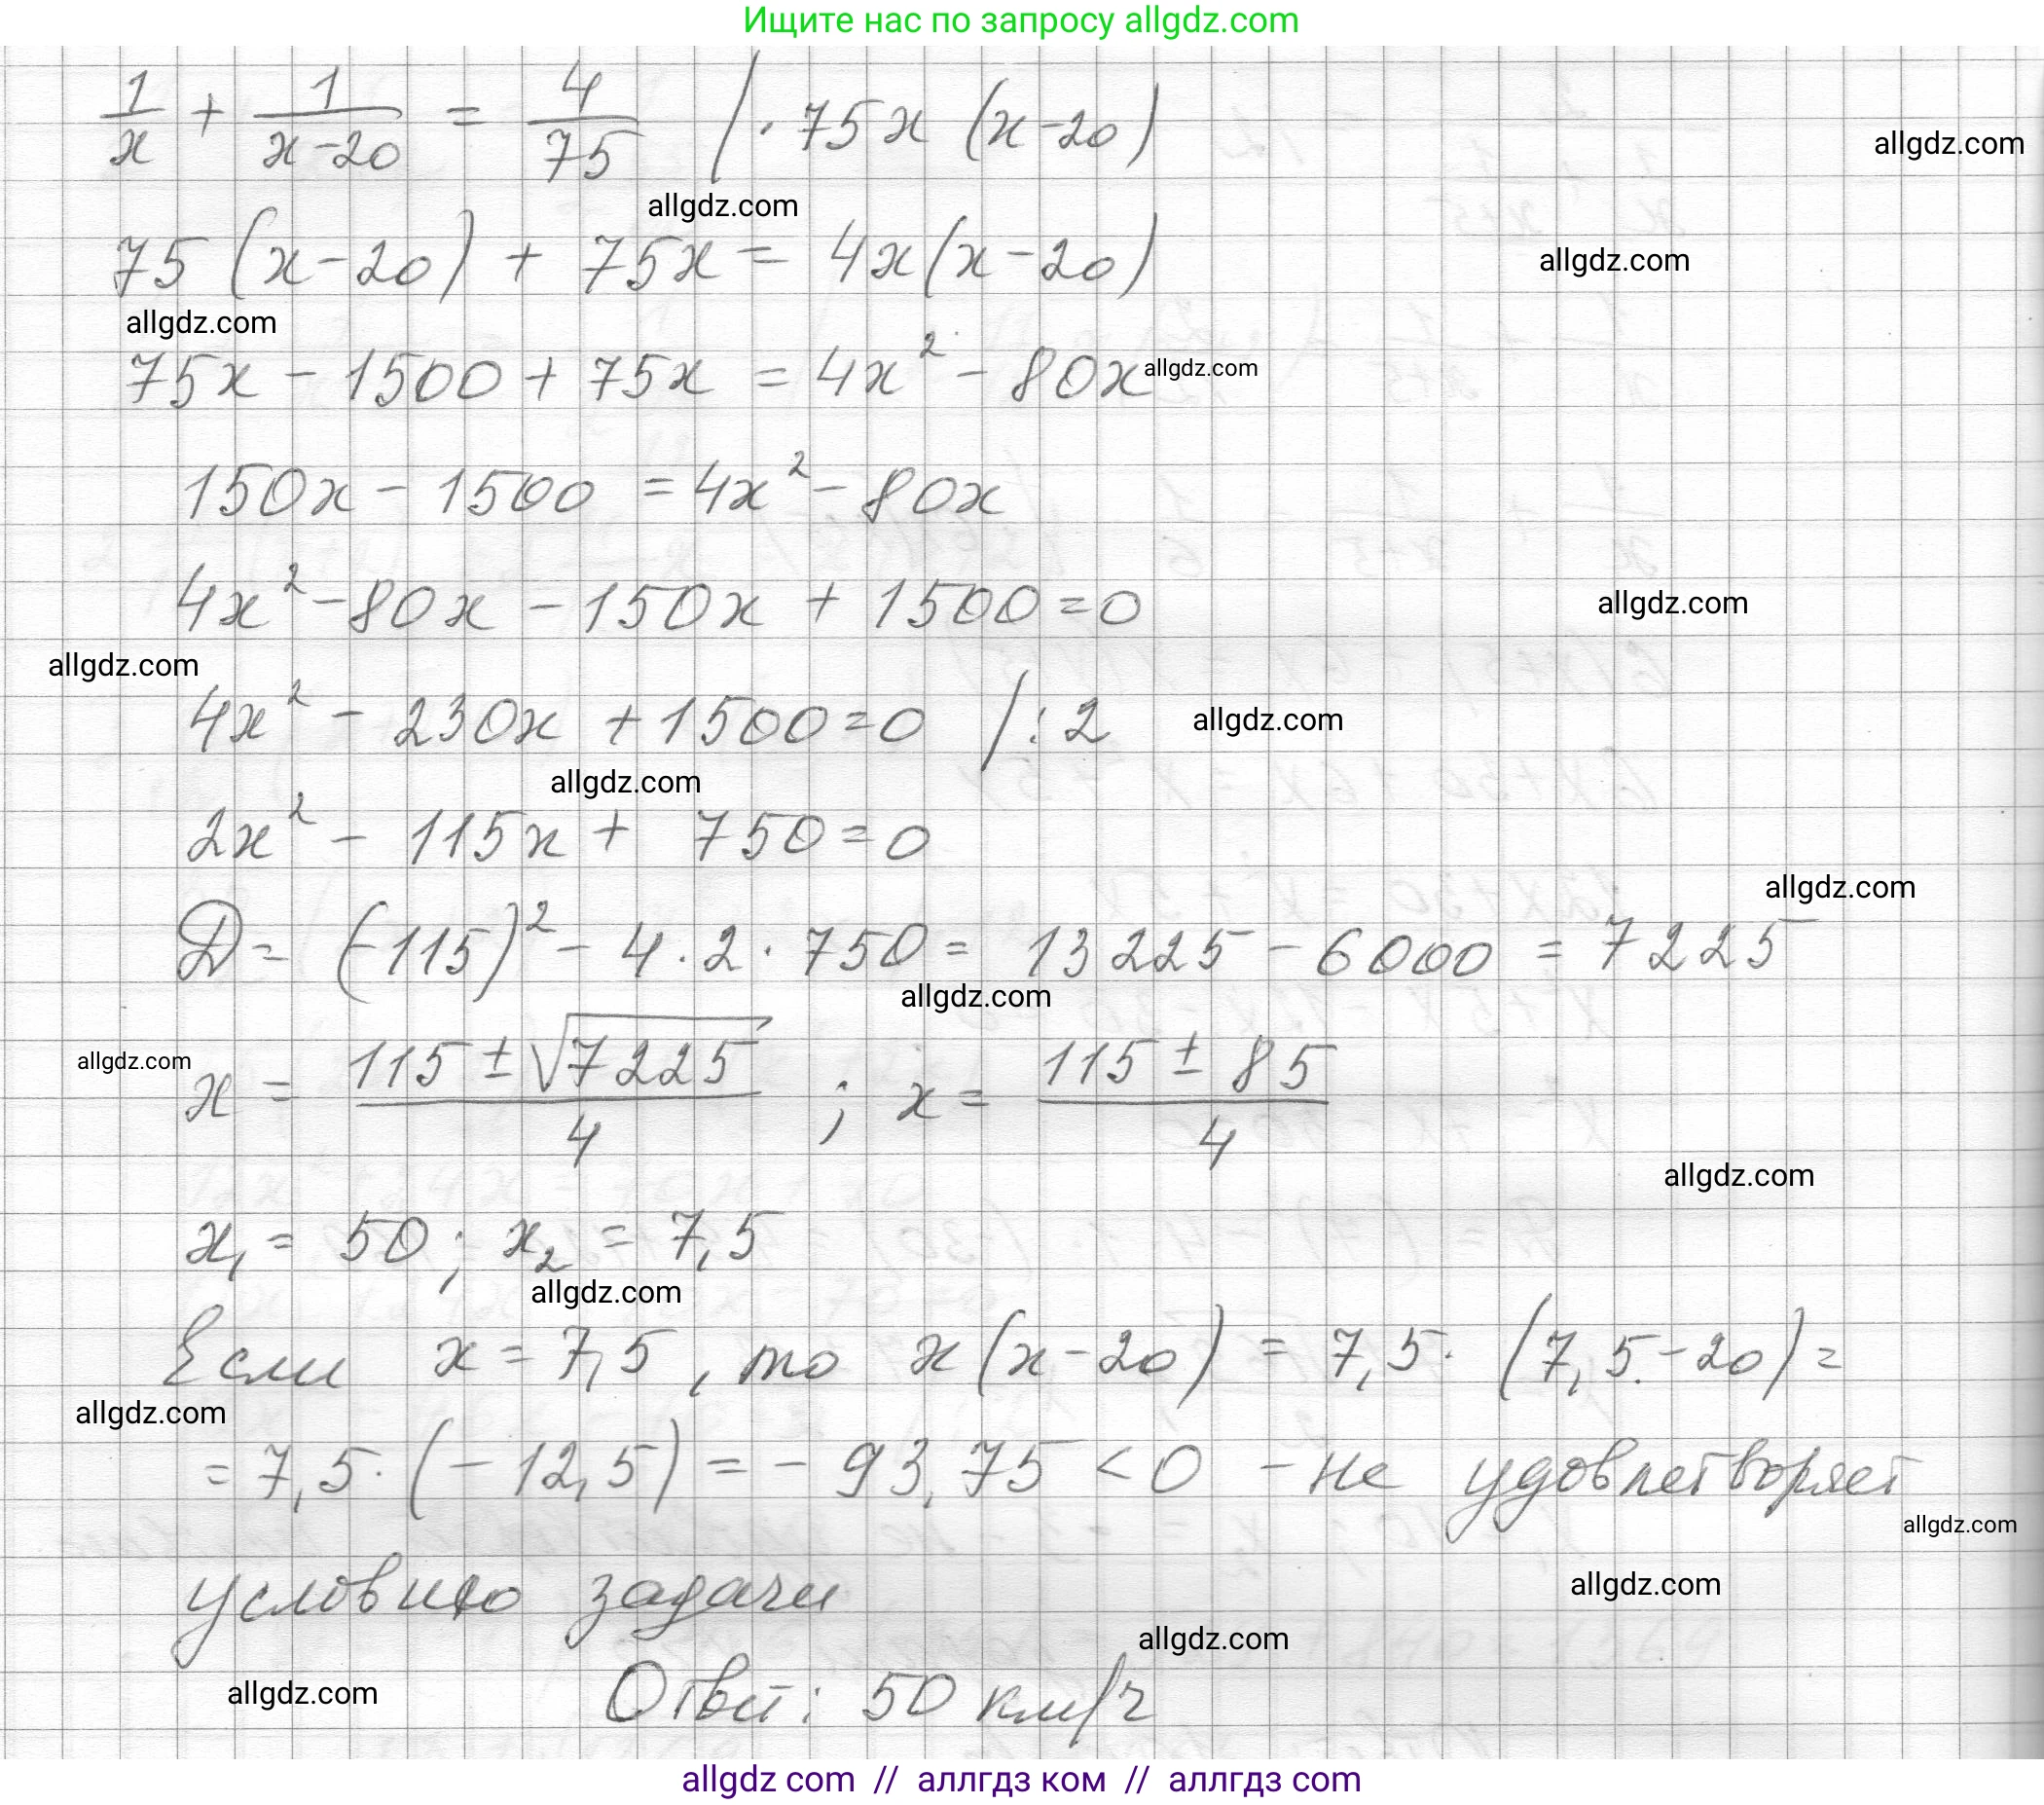 Ищите нас по запросу allgdz.com
1/x + 1/(x-20) = 4/75 / · 75x (x-20)
allgdz.com
allgdz.com
75 (x-20) + 75x = 4x(x-20)
allgdz.com
allgdz.com
75x - 1500 + 75x = 4x² - 80x
allgdz.com
150x - 1500 = 4x² - 80x
4x² - 80x - 150x + 1500 = 0
allgdz.com
allgdz.com
4x² - 230x + 1500 = 0 / : 2
allgdz.com
allgdz.com
2x² - 115x + 750 = 0
allgdz.com
D = (-115)² - 4 · 2 · 750 = 13225 - 6000 = 7225
allgdz.com
allgdz.com
x = (115 ± √7225)/4 ; x = (115 ± 85)/4
allgdz.com
x₁ = 50 ; x₂ = 7,5
allgdz.com
Если x = 7,5 , то x(x-20) = 7,5 · (7,5 - 20) =
allgdz.com
= 7,5 · (-12,5) = - 93,75 < 0 - не удовлетворяет
allgdz.com
условию задачи
allgdz.com
allgdz.com
allgdz.com
Ответ: 50 км/ч
allgdz com // аллгдз ком // аллгдз com